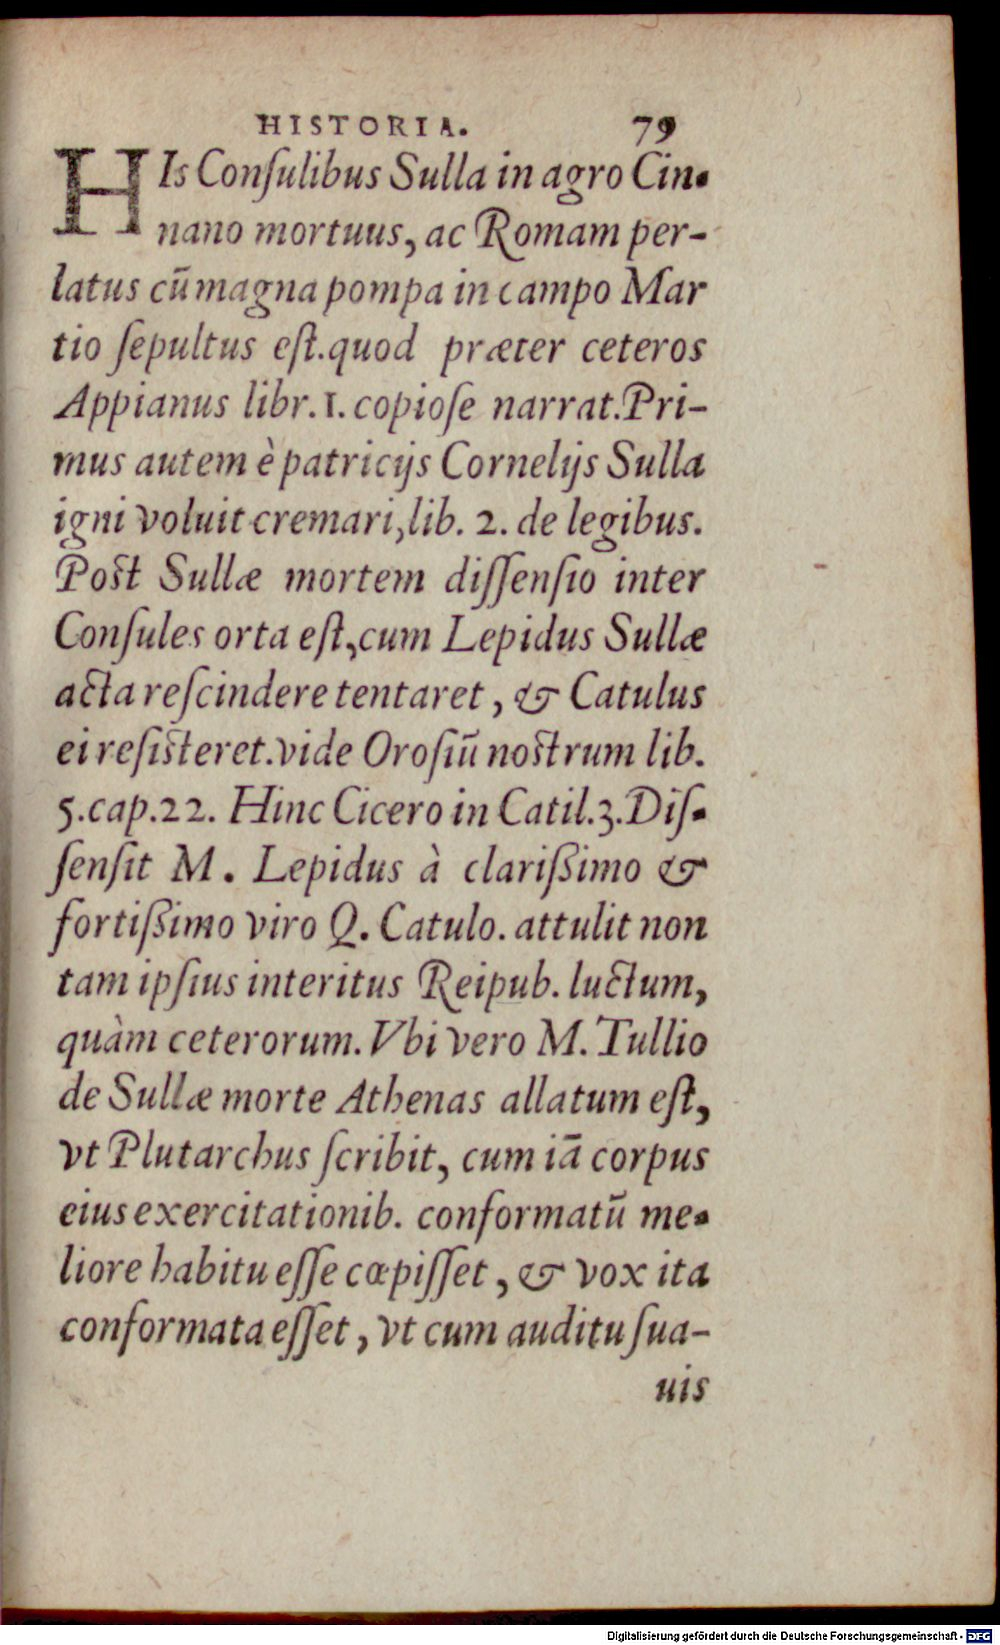 HISTORIA. 79
HIs Conſulibus Sulla in agro Cin-
nano mortuus, ac Romam per-
latus cū magna pompa in campo Mar
tio ſepultus eſt. quod præter ceteros
Appianus libr. 1. copioſe narrat. Pri-
mus autem è patricijs Cornelijs Sulla
igni voluit cremari, lib. 2. de legibus.
Post Sullæ mortem diſſenſio inter
Conſules orta eſt, cum Lepidus Sullæ
acta reſcindere tentaret, & Catulus
ei reſisteret. vide Oroſiū nostrum lib.
5. cap. 22. Hinc Cicero in Catil. 3. Diſ-
ſenſit M. Lepidus à clarißimo &
fortißimo viro Q. Catulo. attulit non
tam ipſius interitus Reipub. luctum,
quàm ceterorum. Vbi vero M. Tullio
de Sullæ morte Athenas allatum eſt,
vt Plutarchus ſcribit, cum iā corpus
eius exercitationib. conformatū me-
liore habitu eſſe cœpiſſet, & vox ita
conformata eſſet, vt cum auditu ſua-
uis
Digitalisierung gefördert durch die Deutsche Forschungsgemeinschaft - DFG